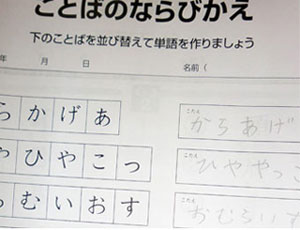 ことばのならびかえ
下のことばを並び替えて単語を作りましょう
年 月 日 名前（
らかげあ
こたえ
からあげ
やひやこっ
こたえ
ひややっこ
らむいおす
こたえ
おむらいす